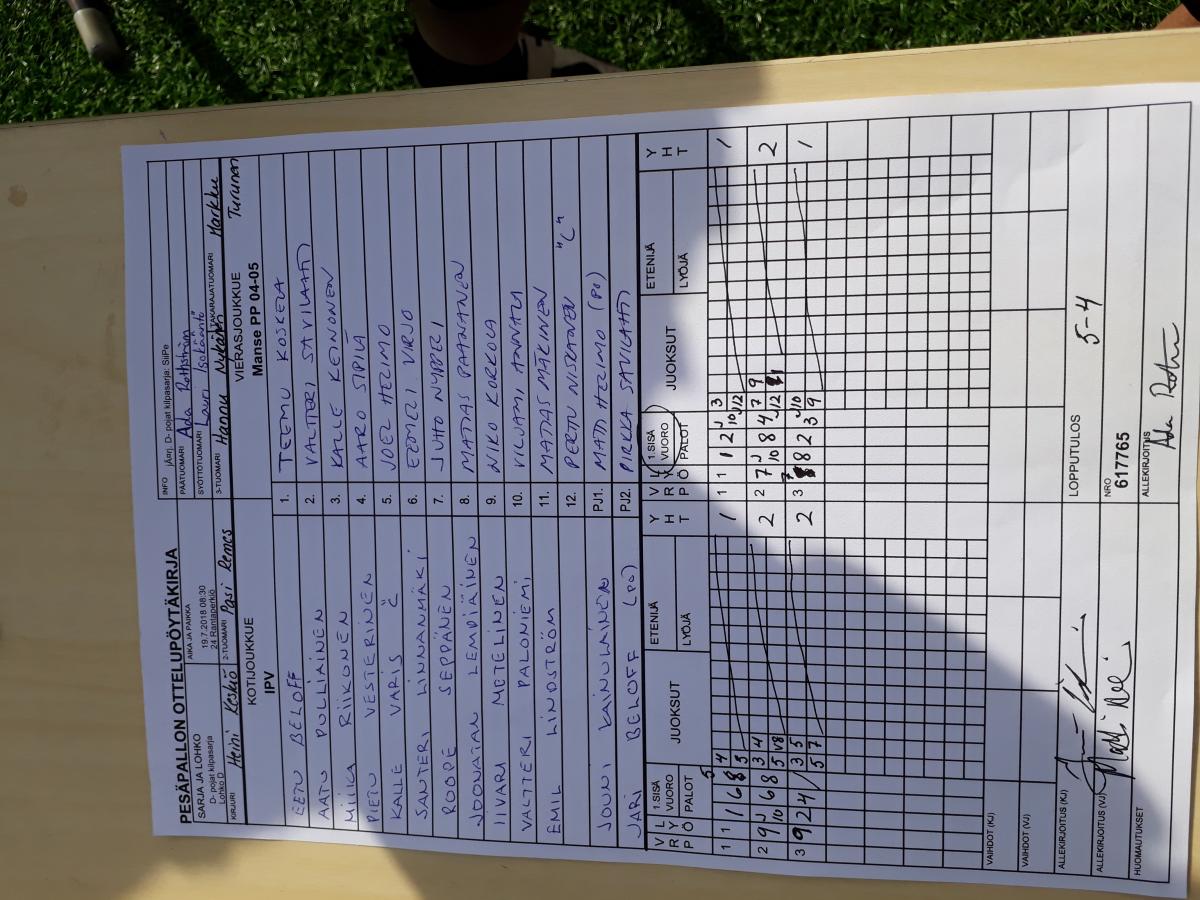 PESÄPALLON OTTELUPÖYTÄKIRJA
SARJA JA LOHKO
D- pojat kilpasarja
Lohko D
AIKA JA PAIKKA
19.7.2018 08:30
24 Rantaperkiö
INFO jÄrj. D- pojat kilpasarja: SiiPe
PÄÄTUOMARI Ada Rothström
SYÖTTÖTUOMARI Lauri Isokääntö
KIRJURI Heini Keskiö
2-TUOMARI Pasi Remes
3-TUOMARI Hannu Nykänen
TAKARAJATUOMARI Markku Turunen
KOTIJOUKKUE
IPV
VIERASJOUKKUE
Manse PP 04-05
EETU BELOFF
AATU PULLIAINEN
MIIKA RIIKONEN
PIETU VESTERINEN
KALLE VARIS Č
SANTERI LINNANMÄKI
ROOPE SEPPÄNEN
JOONATAN LEMPIÄINEN
IIVARI METELINEN
VALTTERI PALONIEMI
EMIL LINDSTRÖM
JOUNI KAINULAINEN
JARI BELOFF (PO)
1. TEEMU KOSKELA
2. VALTTERI SAVILAHTI
3. KALLE KEINONEN
4. AARO SIPILÄ
5. JOEL HELIMO
6. EEMELI VIRJO
7. JUHO NYPPELI
8. MATIAS PAANANEN
9. NIKO KORKOLA
10. VILJAMI ANNALA
11. MATIAS MÄKINEN
12. PERTTU NISKANEN "C"
PJ1. MATTI HELIMO (PO)
PJ2. PIRKKA SAVILAHTI
VRP LYÖ 1.SISÄ VUORO PALOT JUOKSUT ETENIJÄ LYÖJÄ YHT
VRP LYÖ 1.SISÄ VUORO PALOT JUOKSUT ETENIJÄ LYÖJÄ YHT
1 1 1 6 8 4 5 1
1 1 1 2 3 1
2 9 10 6 8 3 4 5 2
2 7 10 8 4 7 9 2
3 9 2 4 3 5 5 7 2
3 8 2 3 9 1
VAIHDOT (KJ)
VAIHDOT (VJ)
ALLEKIRJOITUS (KJ)
ALLEKIRJOITUS (VJ)
HUOMAUTUKSET
LOPPUTULOS 5-4
NRO
617765
ALLEKIRJOITUS